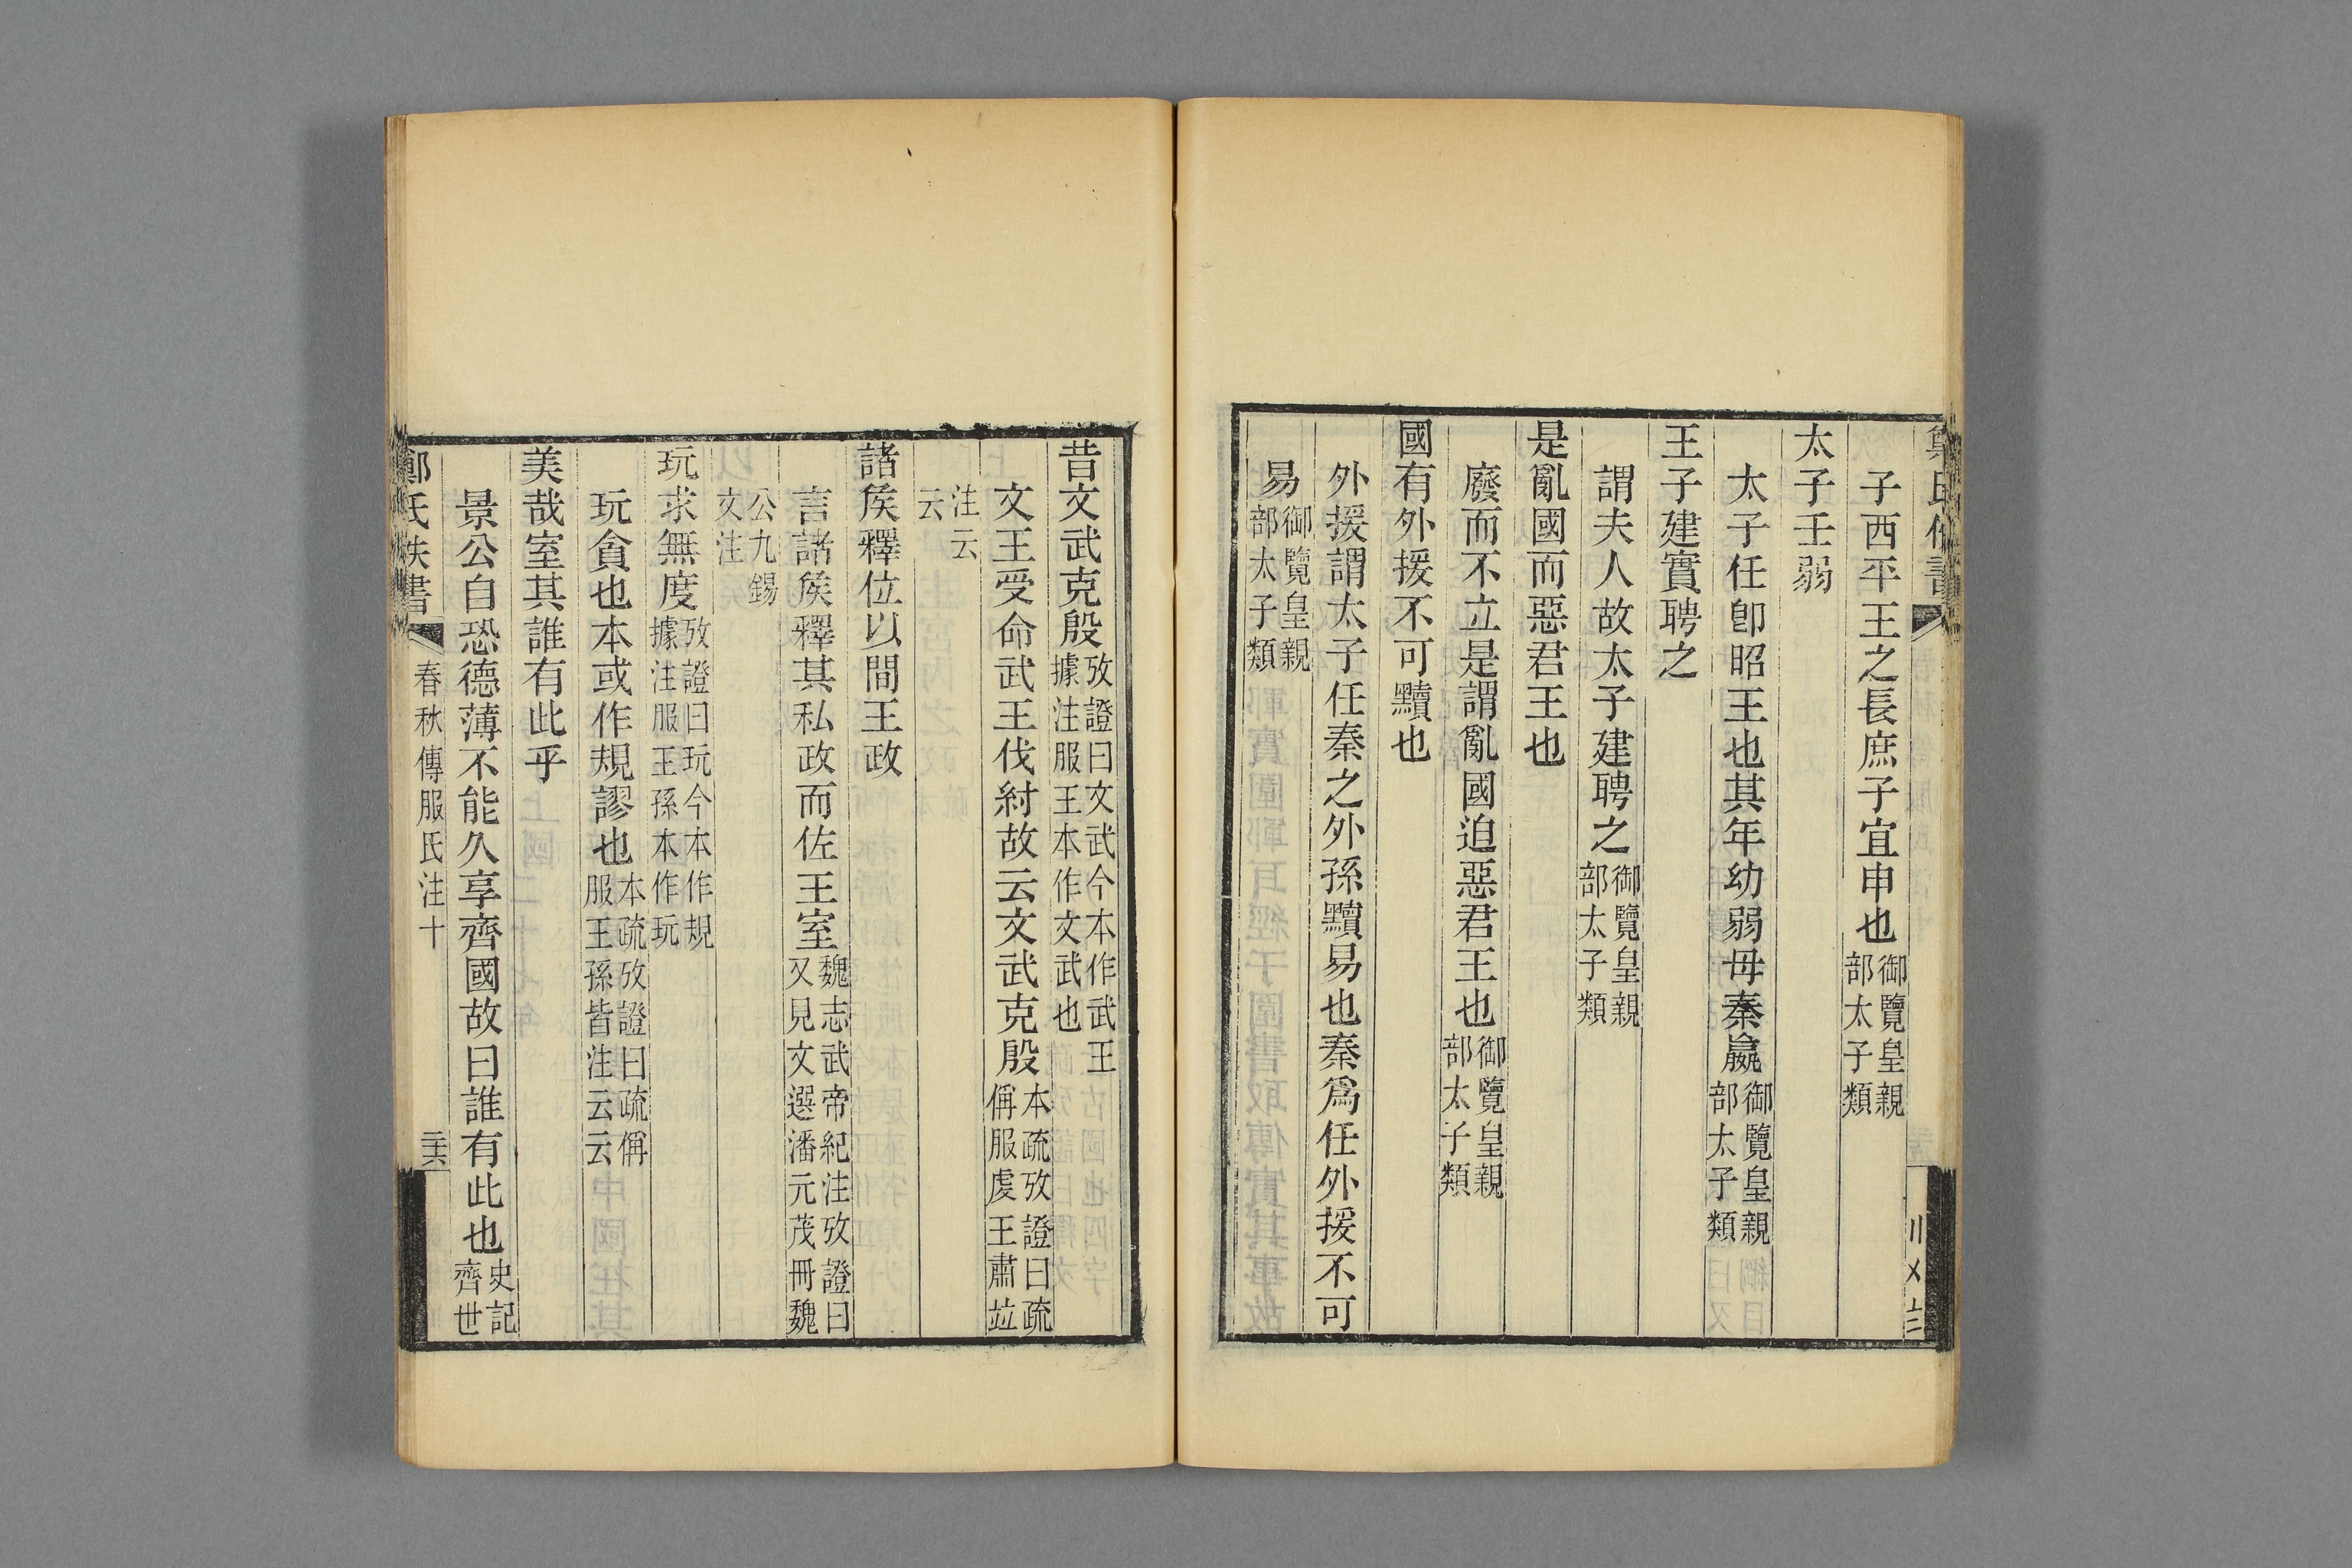 子西平王之長庶子宜申也御覽皇親部太子類
太子壬弱
太子任卽昭王也其年幼弱母秦嬴御覽皇親部太子類
王子建實聘之
謂夫人故太子建聘之御覽皇親部太子類
是亂國而惡君王也
廢而不立是謂亂國迫惡君王也御覽皇親部太子類
國有外援不可黷也
外援謂太子任秦之外孫黷易也秦爲任外援不可
易御覽皇親部太子類
昔文武克殷攷證曰文武今本作武王據注服王本作文武也
文王受命武王伐紂故云文武克殷本疏攷證曰疏偁服虔王肅竝
注云云
諸矦釋位以間王政
言諸矦釋其私政而佐王室魏志武帝紀注攷證曰又見文選潘元茂冊魏
公九錫文注
玩求無度攷證曰玩今本作規據注服王孫本作玩
玩貪也本或作規謬也本疏攷證曰疏偁服王孫皆注云云
美哉室其誰有此乎
景公自恐德薄不能久享齊國故曰誰有此也史記齊世
鄭氏佚書 春秋傳服氏注十 二十六